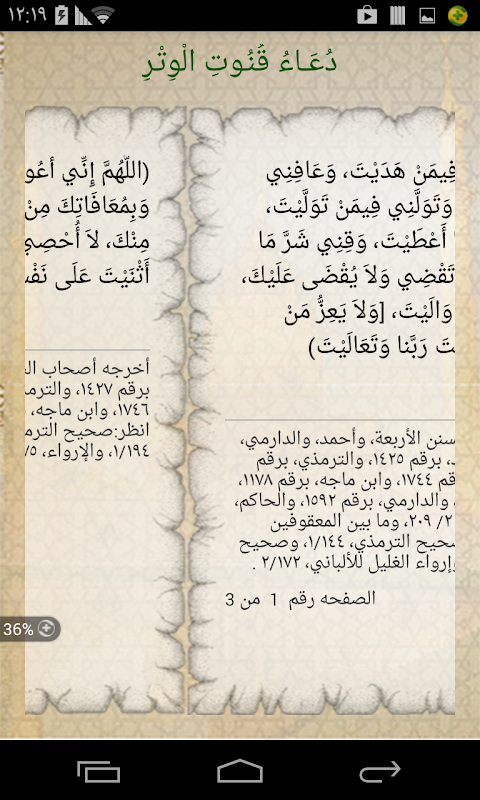 ١٢:١٩
دُعَـاءُ قُنُوتِ الْوِتْرِ
فِيمَنْ هَدَيْتَ، وَعَافِنِي
وَتَوَلَّنِي فِيمَنْ تَوَلَّيْتَ،
أَعْطَيْتَ، وَقِنِي شَرَّ مَا
تَقْضِي وَلاَ يُقْضَى عَلَيْكَ،
وَالَيْتَ، [وَلاَ يَعِزُّ مَنْ
تَ رَبَّنا وَتَعَالَيْتَ)
سنن الأربعة، وأحمد، والدارمي،
، برقم ١٤٢٥، والترمذي، برقم
قم ١٧٤٤، وابن ماجه، برقم ١١٧٨،
، والدارمي، برقم ١٥٩٢، والحاكم،
٢/ ٢٠٩، وما بين المعقوفين
صحيح الترمذي، ١/١٤٤، وصحيح
إرواء الغليل للألباني، ٢/١٧٢ .
الصفحه رقم 1 من 3
(اللّهُمَّ إِنِّي أعُو
وَبِمُعَافَاتِكَ مِنْ
مِنْكَ، لاَ أُحْصِي
أَثْنَيْتَ عَلَى نَفْ
أخرجه أصحاب ال
برقم ١٤٢٧، والترمذ
١٧٤٦، وابن ماجه،
انظر:صحيح الترم
١/١٩٤، والإرواء، ٧٥/
36%